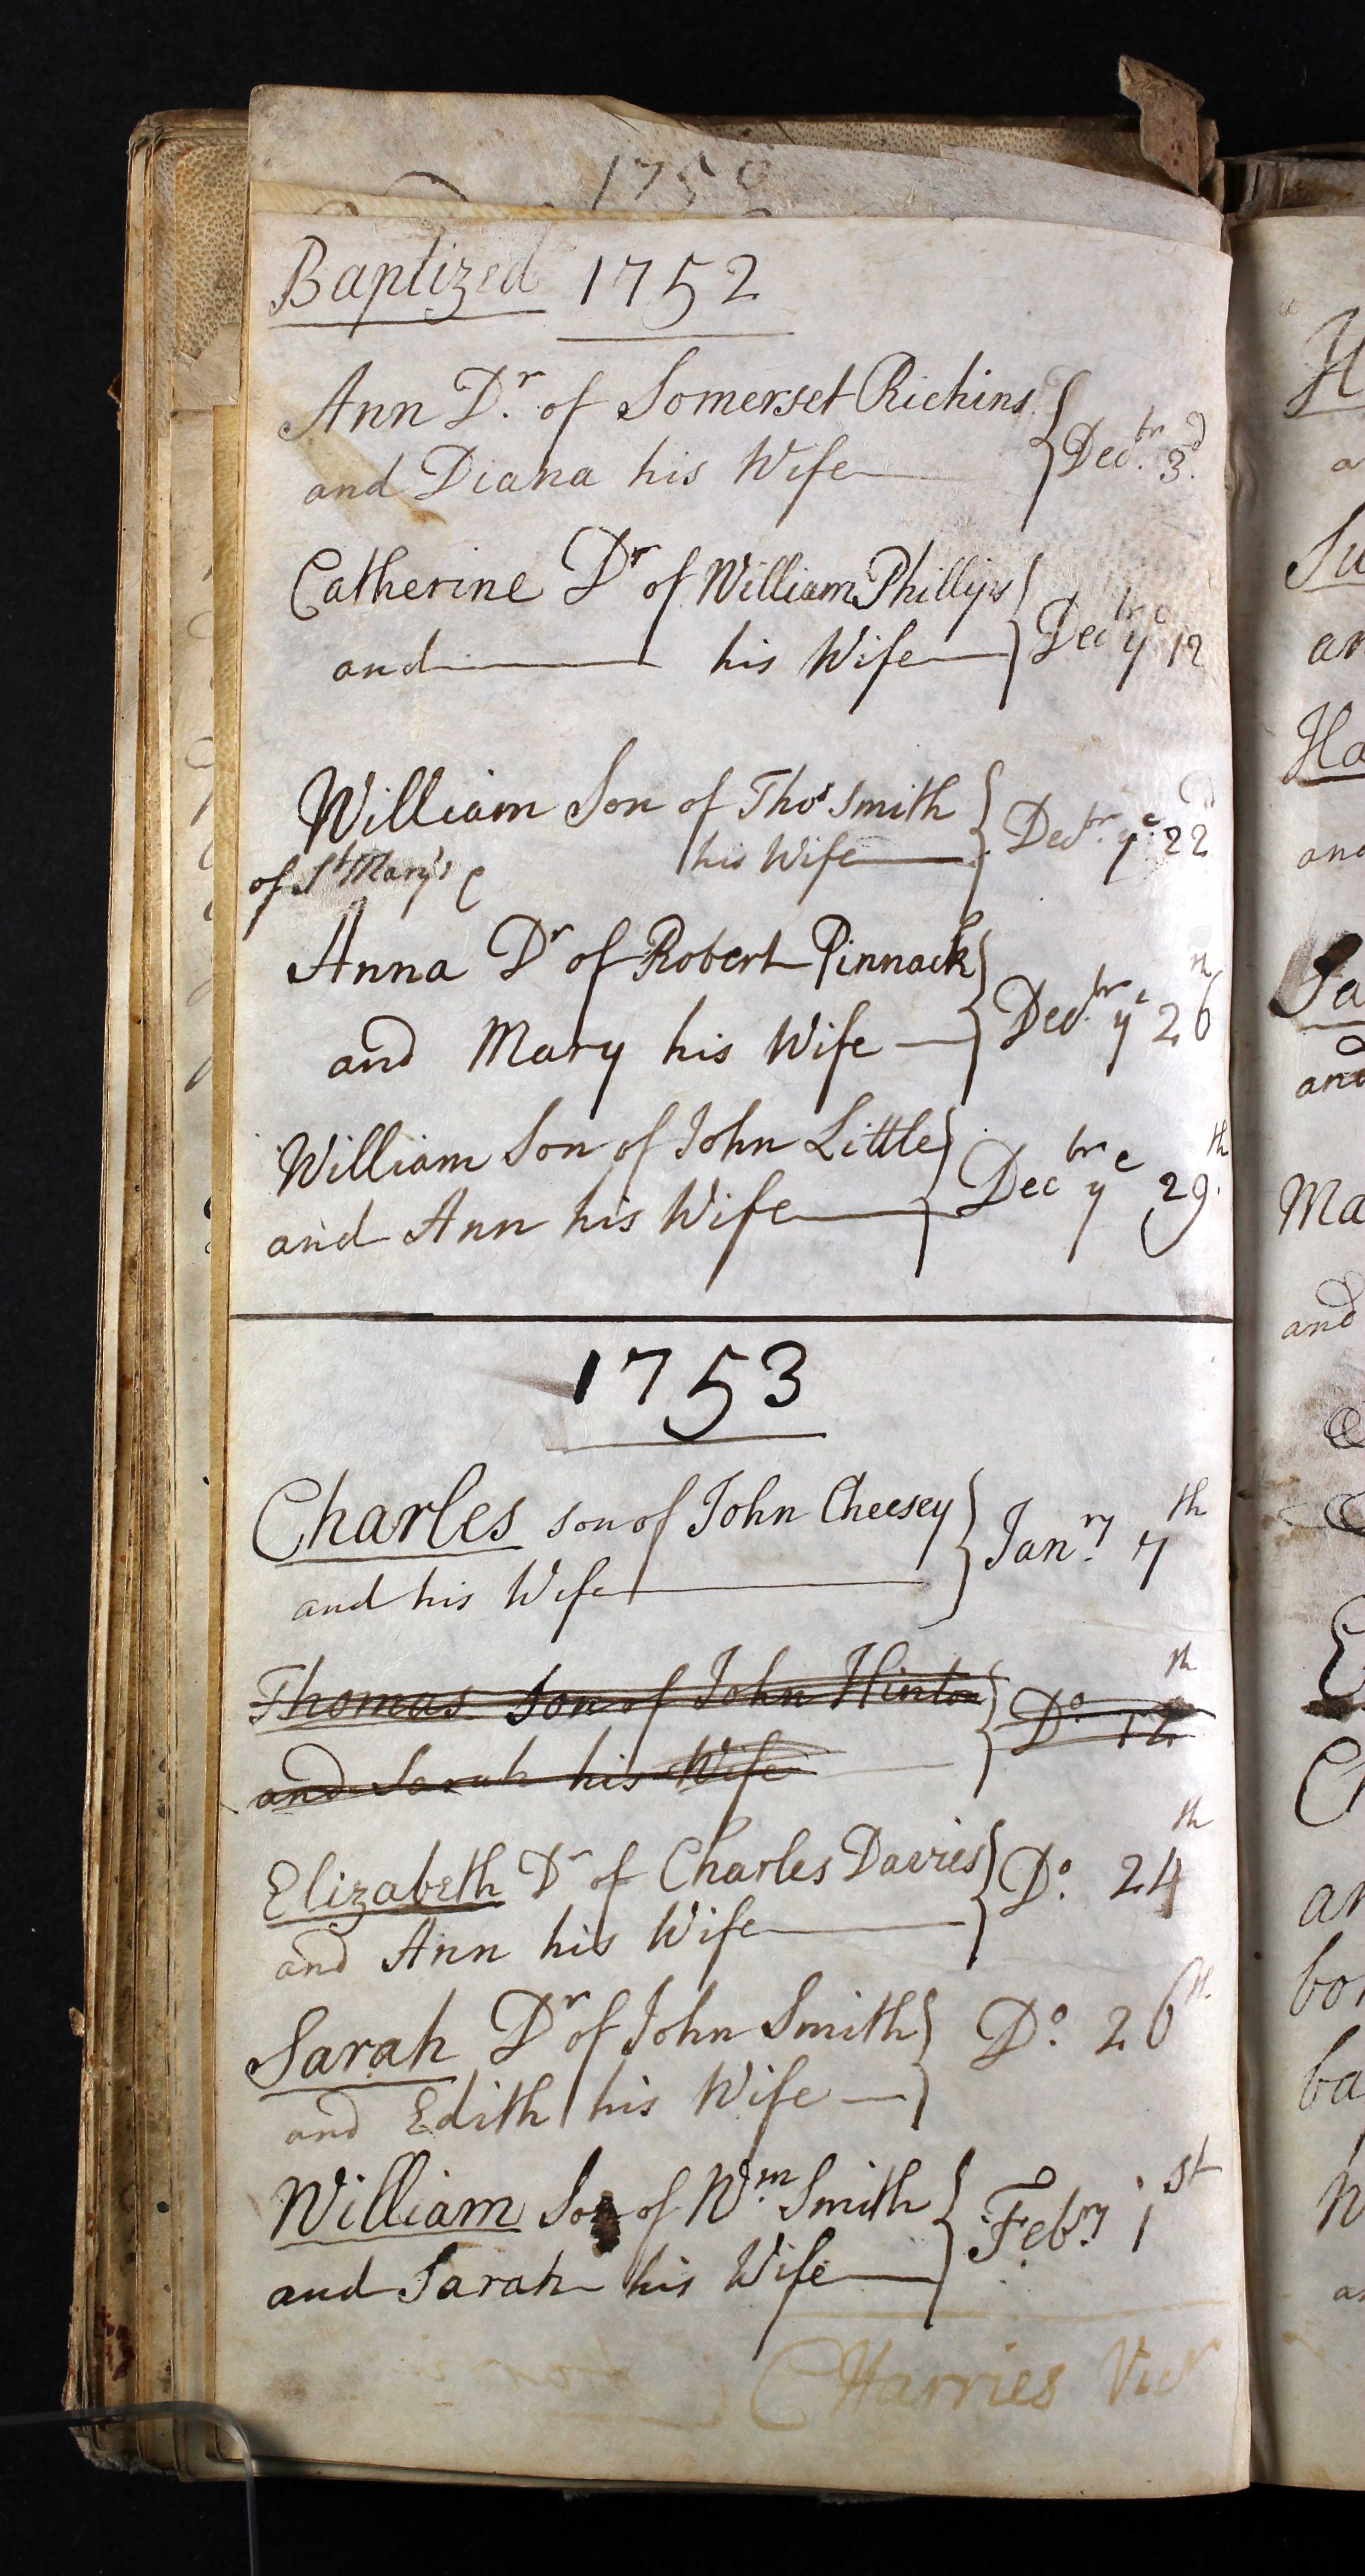 1750
Baptized 1752
Ann Dr. of Somerset Richins
and Diana his Wife
Decbr. 3d.
Catherine Dr of William Phillips
and his Wife
Decbr ye 12
William Son of Thos Smith
his Wife
Decbr. ye 22d
of St Mary's
Anna Dr of Robert Pinnack
and Mary his Wife
Decbr. ye 26th
William Son of John Little
and Ann his Wife
Decbr ye 29th.
1753
Charles son of John Cheesey
and his Wife
Janry. 7th
Thomas Son of John Hinton
and Sarah his Wife
Do 12th
Elizabeth Dr of Charles Davies
and Ann his Wife
Do. 24th
Sarah Dr of John Smith
and Edith his Wife
Do. 26th
William Son of Wm. Smith
and Sarah his Wife
Febry. 1st
C Harries Vicr